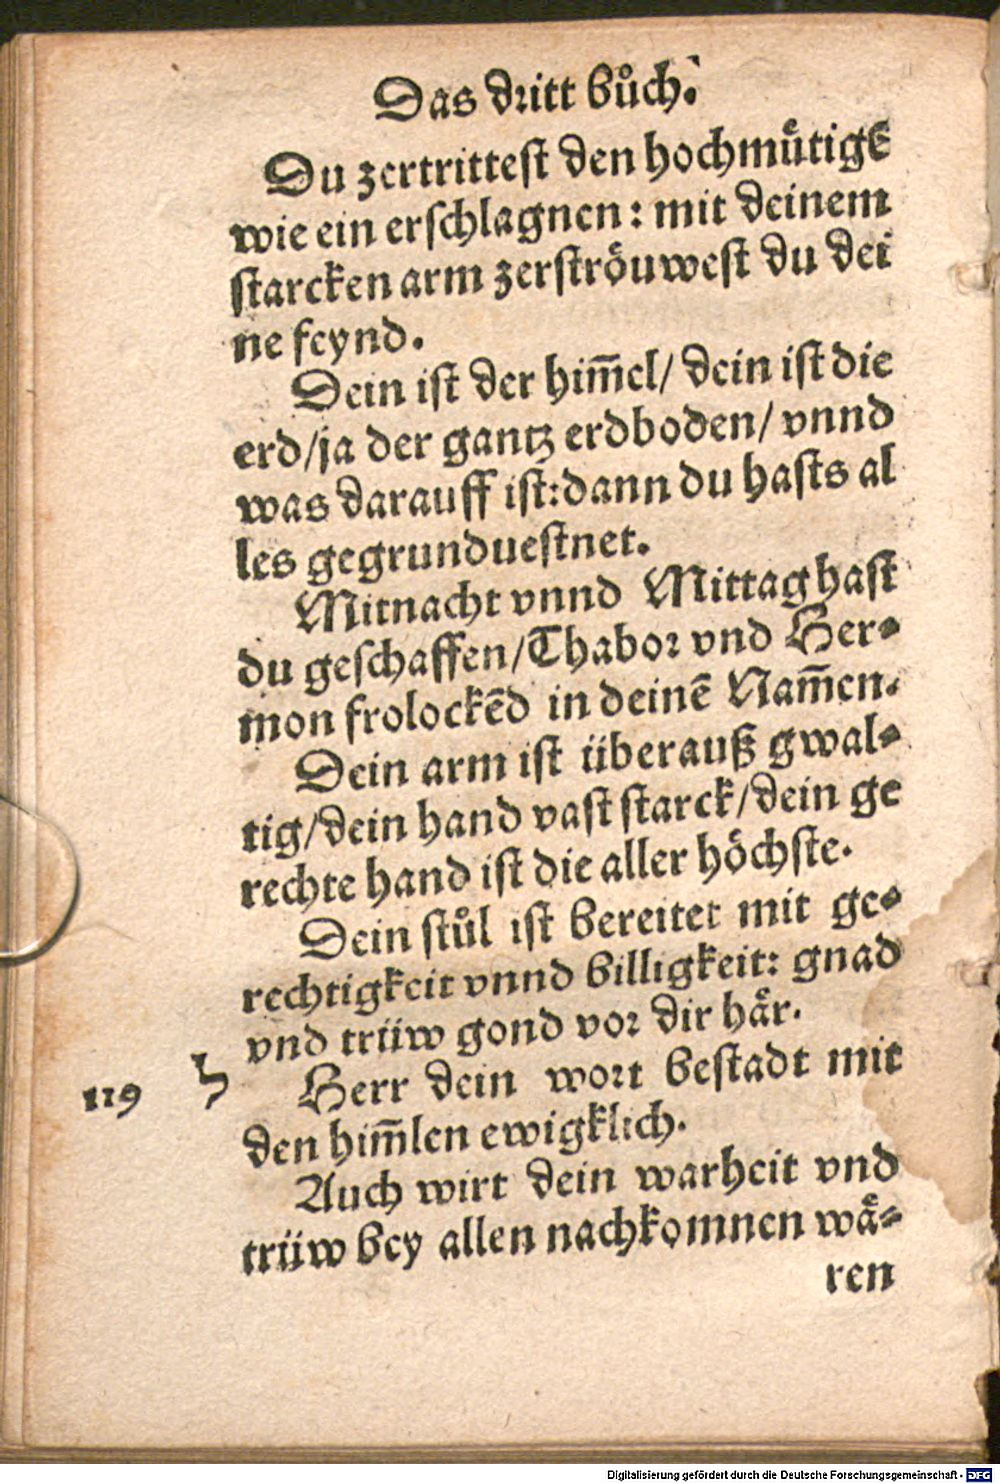 Das dritt bůch.
Du zertrittest den hochmuͤtigē
wie ein erschlagnen: mit deinem
starcken arm zerstroͤuwest du dei
ne feynd.
Dein ist der him̄el/ dein ist die
erd/ja der gantz erdboden/ vnnd
was darauff ist:dann du hasts al
les gegrunduestnet.
Mitnacht vnnd Mittag hast
du geschaffen/Thabor vnd Her⸗
mon frolockēd in deinē Nam̄en.
Dein arm ist überauß gwal⸗
tig/dein hand vast starck/dein ge
rechte hand ist die aller hoͤchste.
Dein stůl ist bereitet mit ge⸗
rechtigkeit vnnd billigkeit: gnad
vnd trüw gond vor dir haͤr.
119 ל Herr dein wort bestadt mit
den him̄len ewigklich.
Auch wirt dein warheit vnd
trüw bey allen nachkomnen waͤ⸗
ren
Digitalisierung gefördert durch die Deutsche Forschungsgemeinschaft - DFG